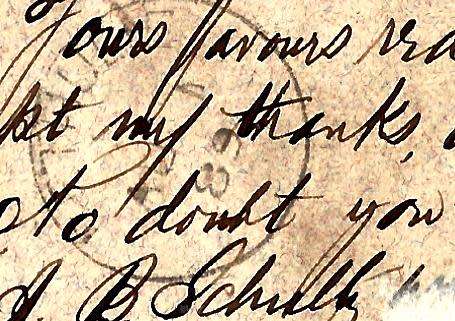 Yours favours re
my thanks,
No doubt you
B Schultz